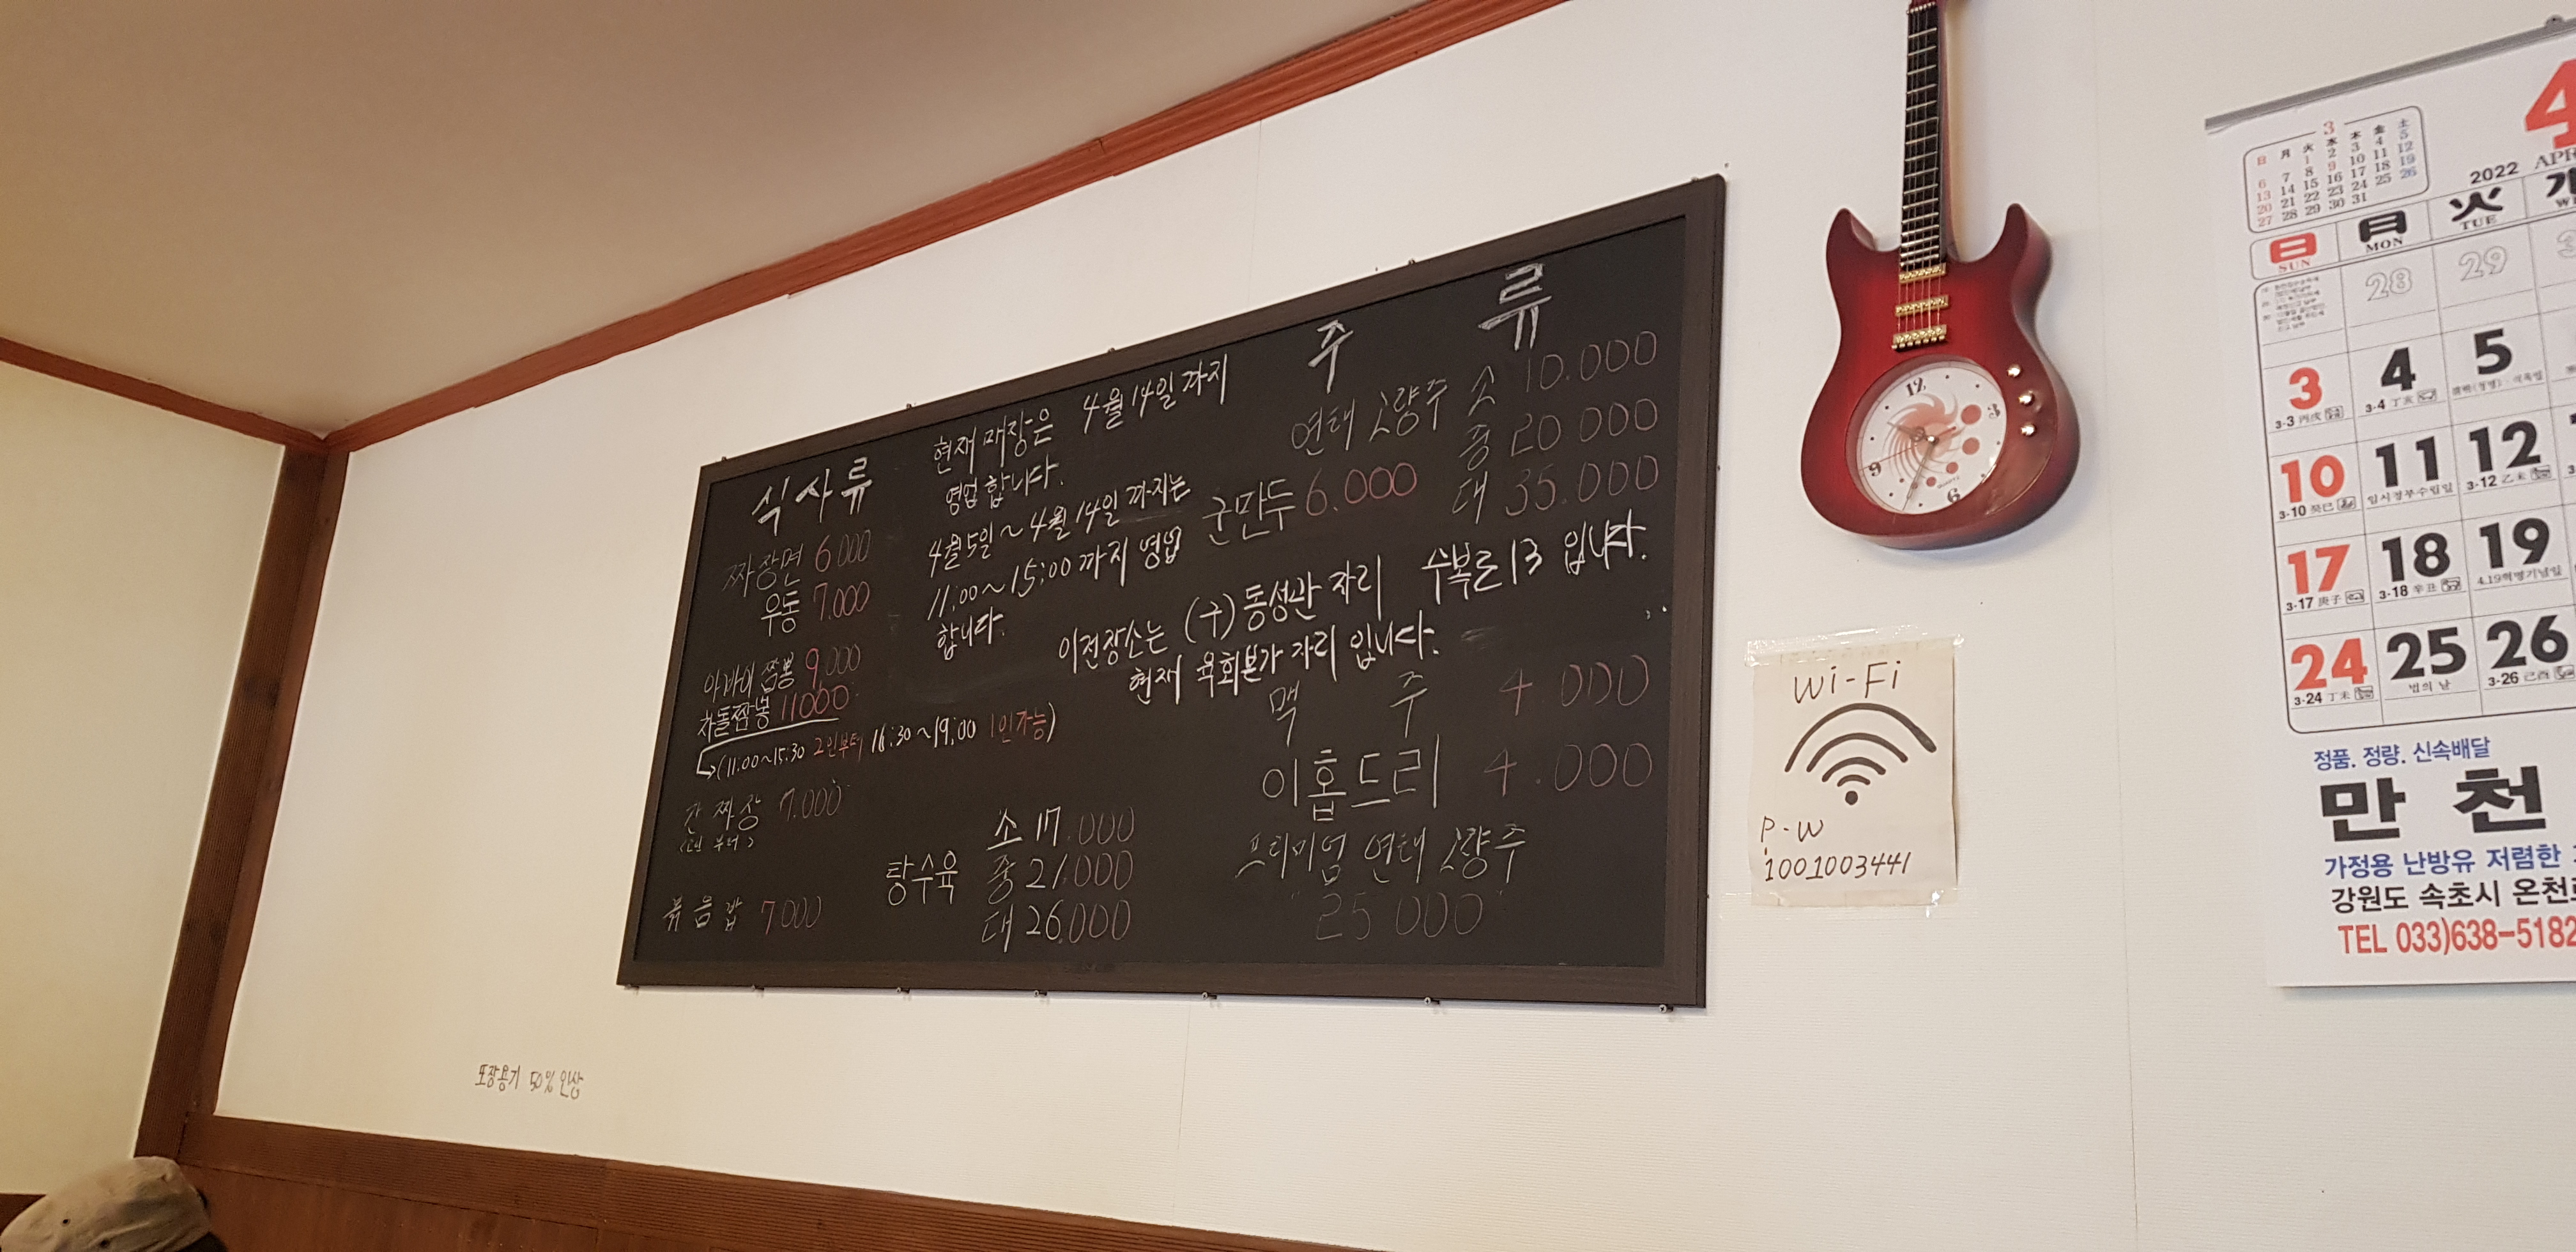 식사류
짜장면 6.000
우동 7.000
아바이 짬뽕 9,000
차돌짬뽕 11000
(11:00~15:30 2인부터 16:30~19:00 1인가능)
간짜장 7.000
볶음밥 7000
현재 매장은 4월 14일 까지
영업 합니다.
4월 5일 ~ 4월 14일 까지는
11:00 ~ 15:00 까지 영업
합니다.
이전장소는 (구) 동성관 자리 수복로 13 입니다.
현재 육회본가 자리 입니다.
탕수육
소 17.000
중 21.000
대 26.000
군만두 6.000
주류
연태고량주 소 10.000
중 20 000
대 35.000
맥주 4.000
이홉드리 4.000
프리미엄 연태고량주
25 000
포장용기 50% 인상
Wi-Fi
P.W
1001003441
12
3
6
9
3
日 月 火 水 木 金 土
1 2 3 4 5
6 7 8 9 10 11 12
13 14 15 16 17 18 19
20 21 22 23 24 25 26
27 28 29 30 31
2022
4
APR
日 月 火
SUN MON TUE
28 29
3 4 5
3-3 丙戌 3-4 丁亥
10 11 12
3-10 癸巳 임시정부수립일 3-12 乙未
17 18 19
3-17 庚子 3-18 辛丑 4.19혁명기념일
24 25 26
3-24 丁未 법의 날 3-26 己酉
정품. 정량. 신속배달
만천
가정용 난방유 저렴한
강원도 속초시 온천로
TEL 033)638-5182